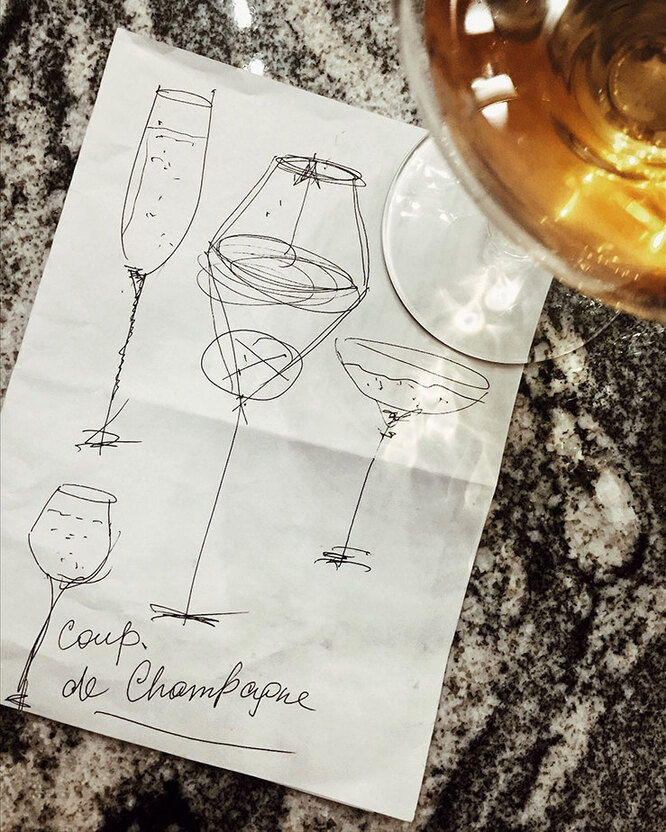 coup.
de Champagne